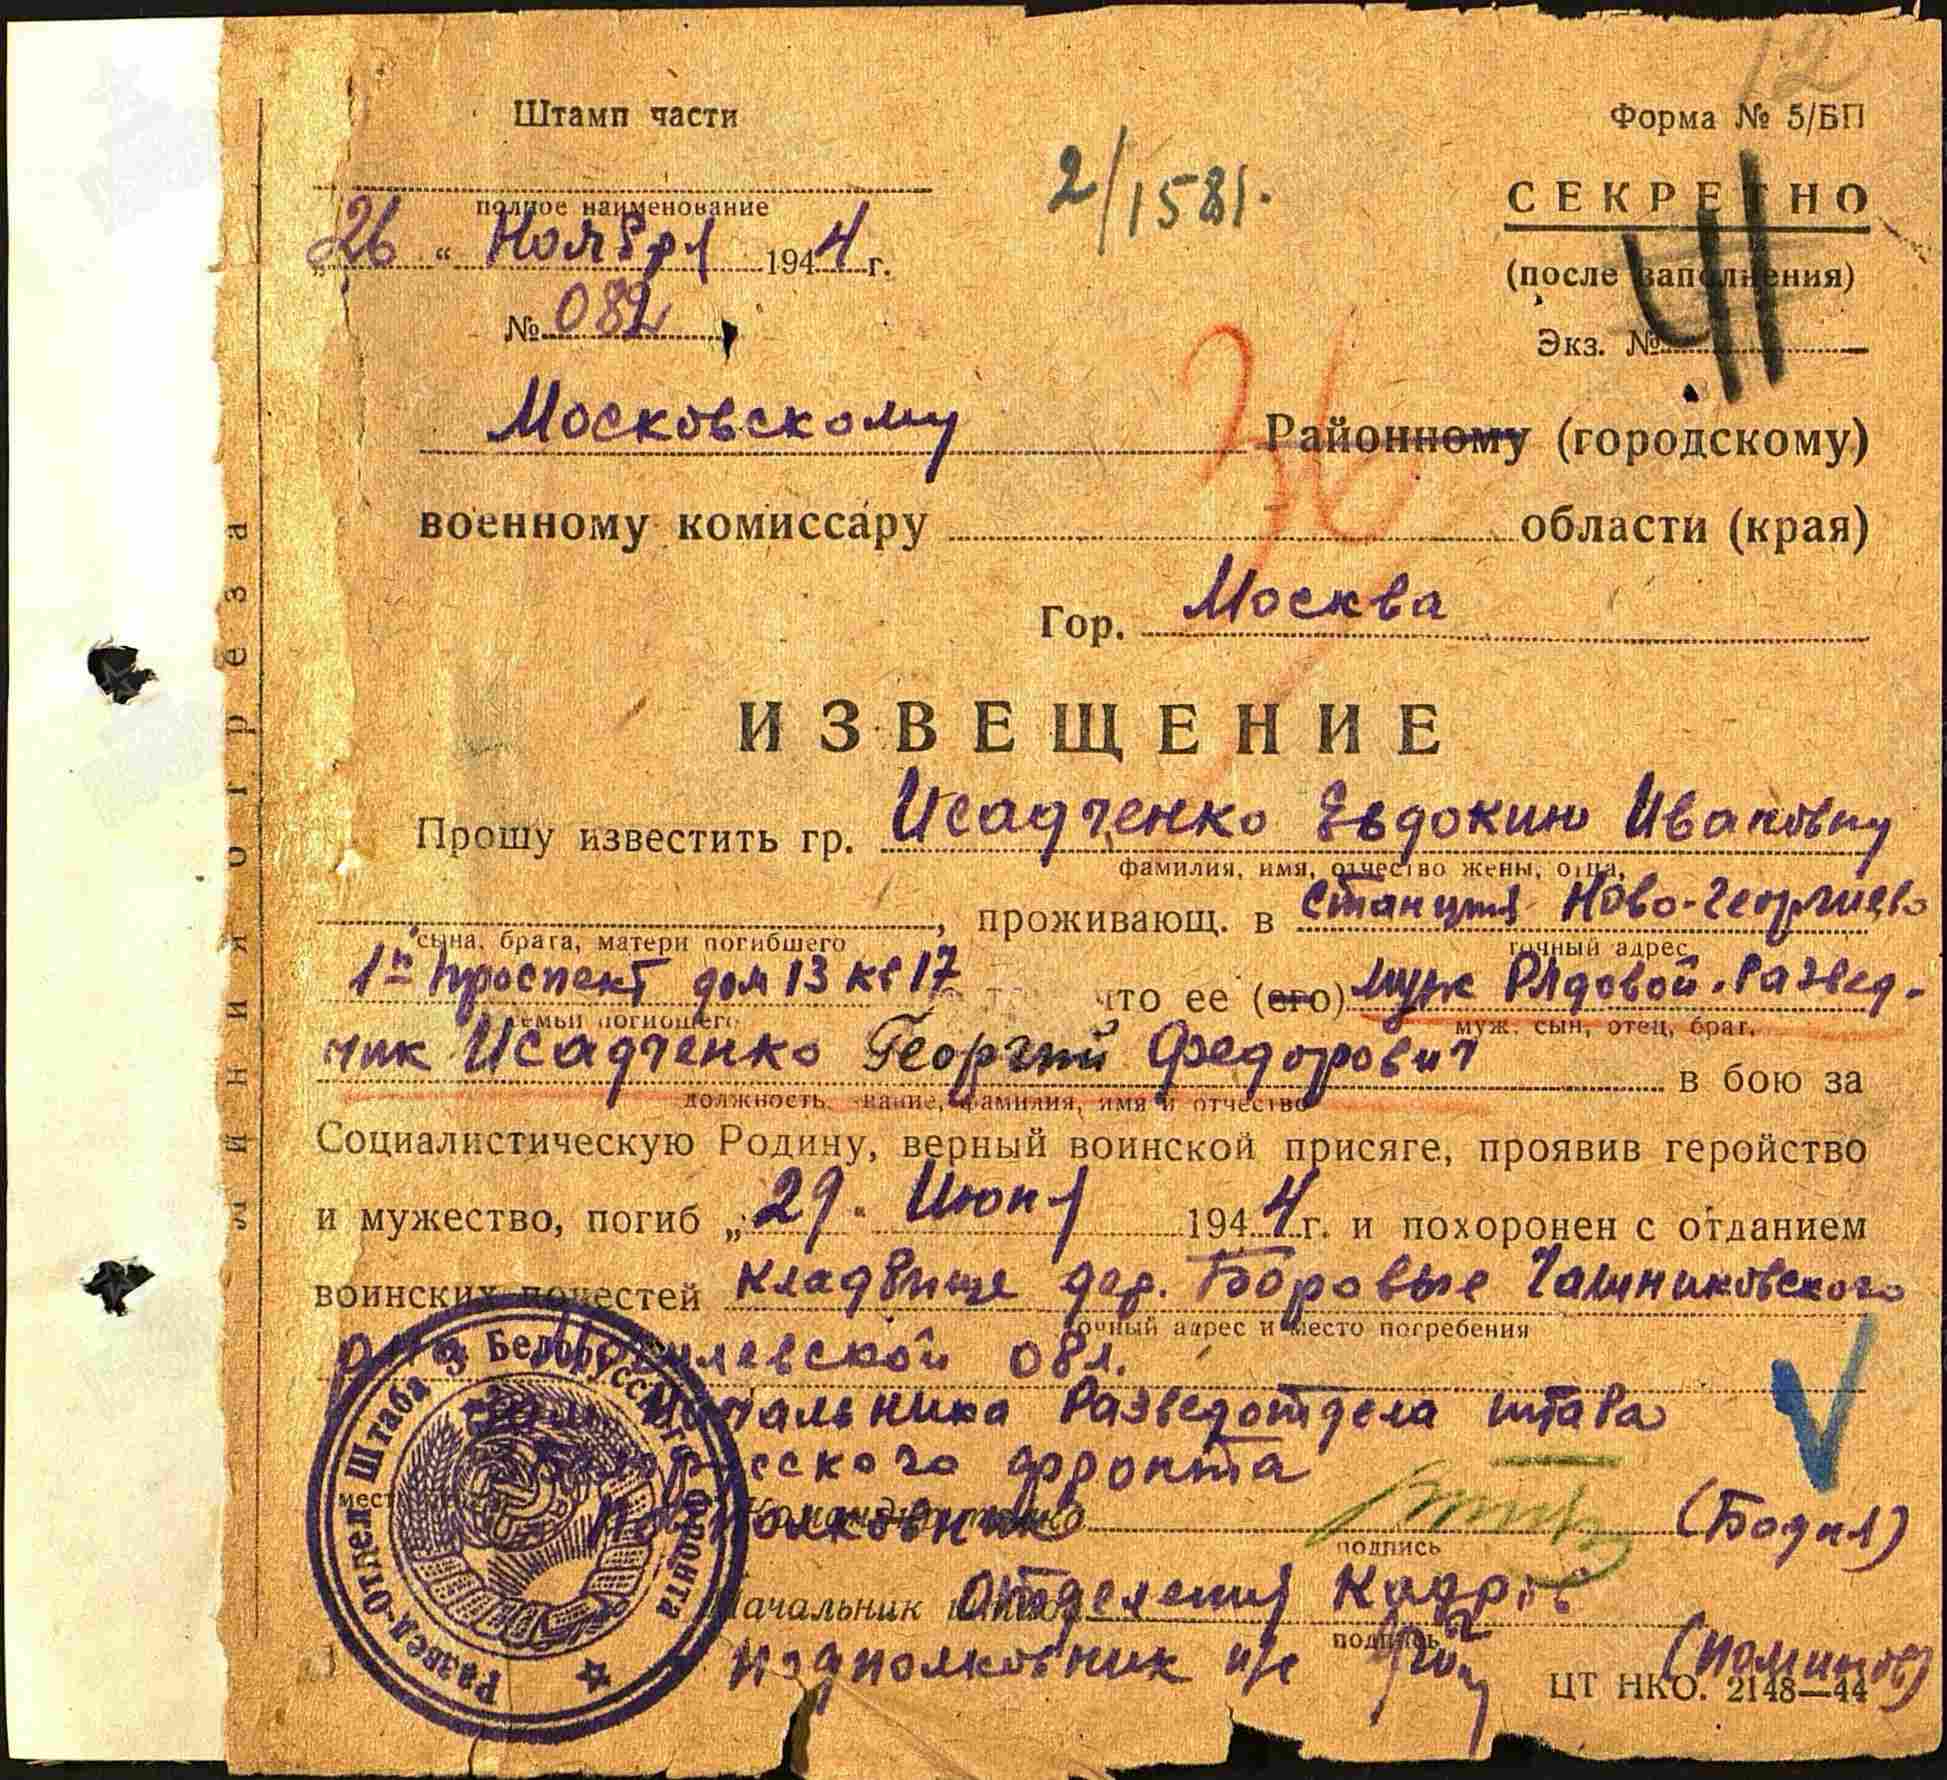 12
Штамп части
Форма № 5/БП
2/1581.
СЕКРЕТНО
полное наименование
„26 “ Ноября 1944 г.
(после заполнения)
№ 082
Экз. №
41
36
Московскому Районному (городскому)
военному комиссару области (края)
Гор. Москва
ИЗВЕЩЕНИЕ
Прошу известить гр. Исадченко Евдокию Ивановну
фамилия, имя, отчество жены, отца,
, проживающ. в станция Ново-Георгиево
сына, брата, матери погибшего
точный адрес
1й проспект дом 13 кв 17 что ее (его) муж Рядовой-Развед-
семьи погибшего
муж, сын, отец, брат,
чик Исадченко Георгий Федорович в бою за
должность, звание, фамилия, имя и отчество
Социалистическую Родину, верный воинской присяге, проявив геройство
и мужество, погиб „29. Июня 1944 г. и похоронен с отданием
воинских почестей кладбище дер. Боровые Чашниковского
точный адрес и место погребения
Могилевской обл.
Зам. Начальника Разведотдела штаба
Белорусского фронта
Подполковник
подпись
Начальник Отделения Кадров
подпись
подполковник и/с
ЦТ НКО. 2148—44
Развед-Отдел Штаба 3 Белорусского Фронта
линия отреза